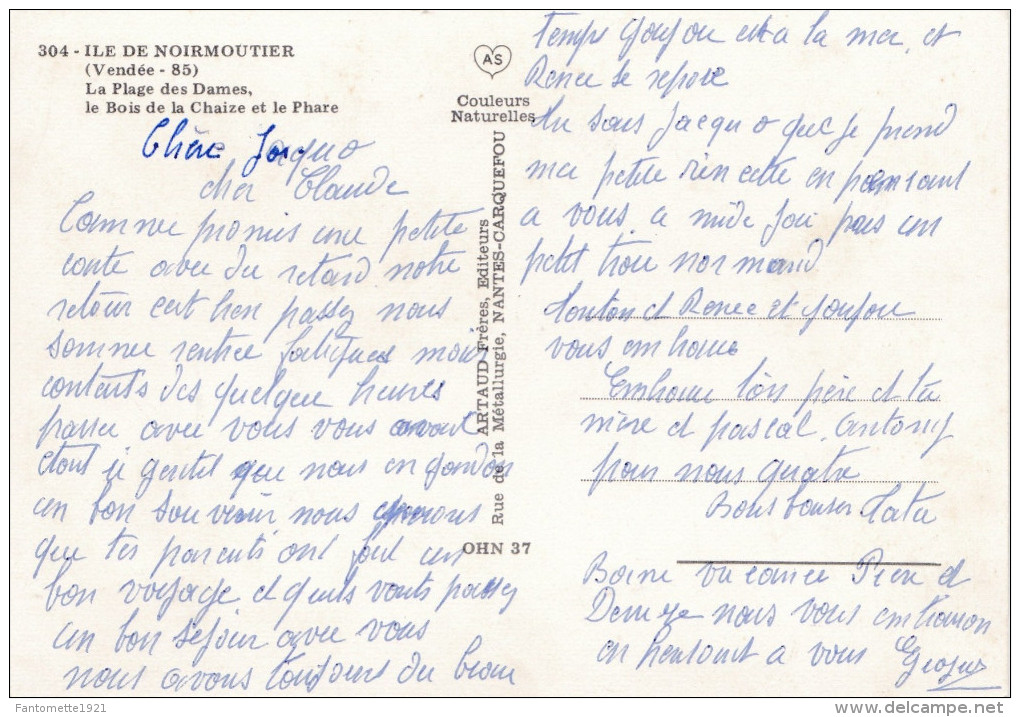 304 - ILE DE NOIRMOUTIER
(Vendée - 85)
La Plage des Dames,
le Bois de la Chaize et le Phare
Chère Jacquo
cher Claude
Comme promis une petite
carte avec du retard notre
retour cest bien passez nous
somme rentrée fatigués mais
contents des quelque heures
passer avec vous vous avait
etant si gentil que nous en gardon
un bon souvenir nous esperons
que tes parents ont fait un
bon voyage et quils vont passez
un bon sejour avec vous
nous avons toujours du beau
AS
Couleurs
Naturelles
ARTAUD Frères, Editeurs
Rue de la Métallurgie, NANTES-CARQUEFOU
OHN 37
temps foufou est a la mer, et
Renee se repose
tu sais Jacquo que je prend
ma petite rincette en pensant
a vous a midi J'ai pas un
petit trou normand
Tonton et Renee et foufou
vous embrasse
Embrasse ton père et ta
mère et pascal, antony
pour nous quatre
Bons baiser Tata
Bonne vacance Pierre et
Denise nous vous embrasson
en pensant a vous
Fantomette1921
delcampe.net